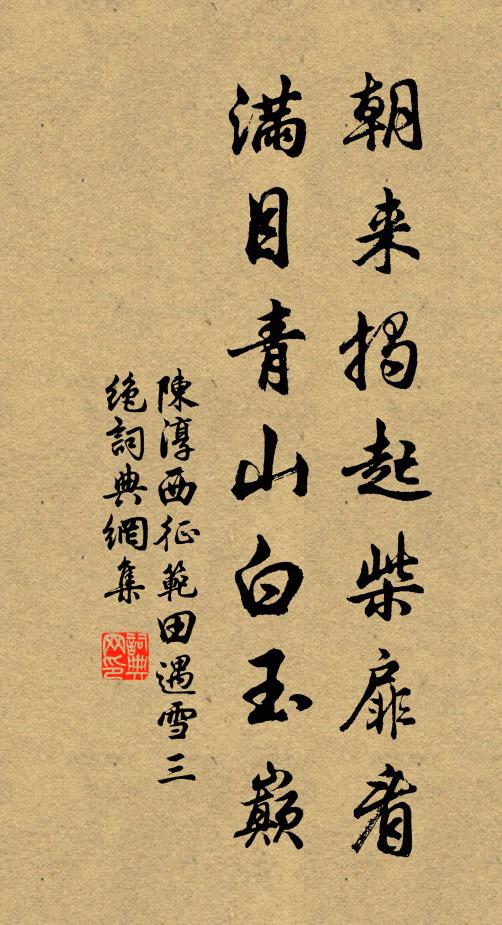 朝来揭起柴扉看
满目青山白玉巅
陳淳西征範田遇雪三
絶詞典網集
詞典网印